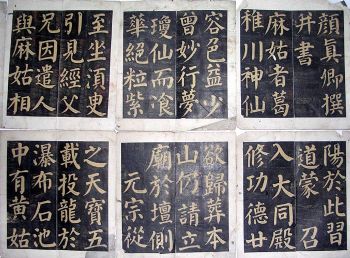 顔真卿撰
并書
麻姑者葛
稚川神仙
容色益少
曾妙行夢
瓊仙而食
華絕粒紫
至坐須臾
引見經父
兄因遣人
與麻姑相
陽於此習
道蒙召
入大同殿
修功德廿
欲歸葬本
山仍請立
廟於壇側
元宗從
之天寶五
載投龍於
瀑布石池
中有黄姑